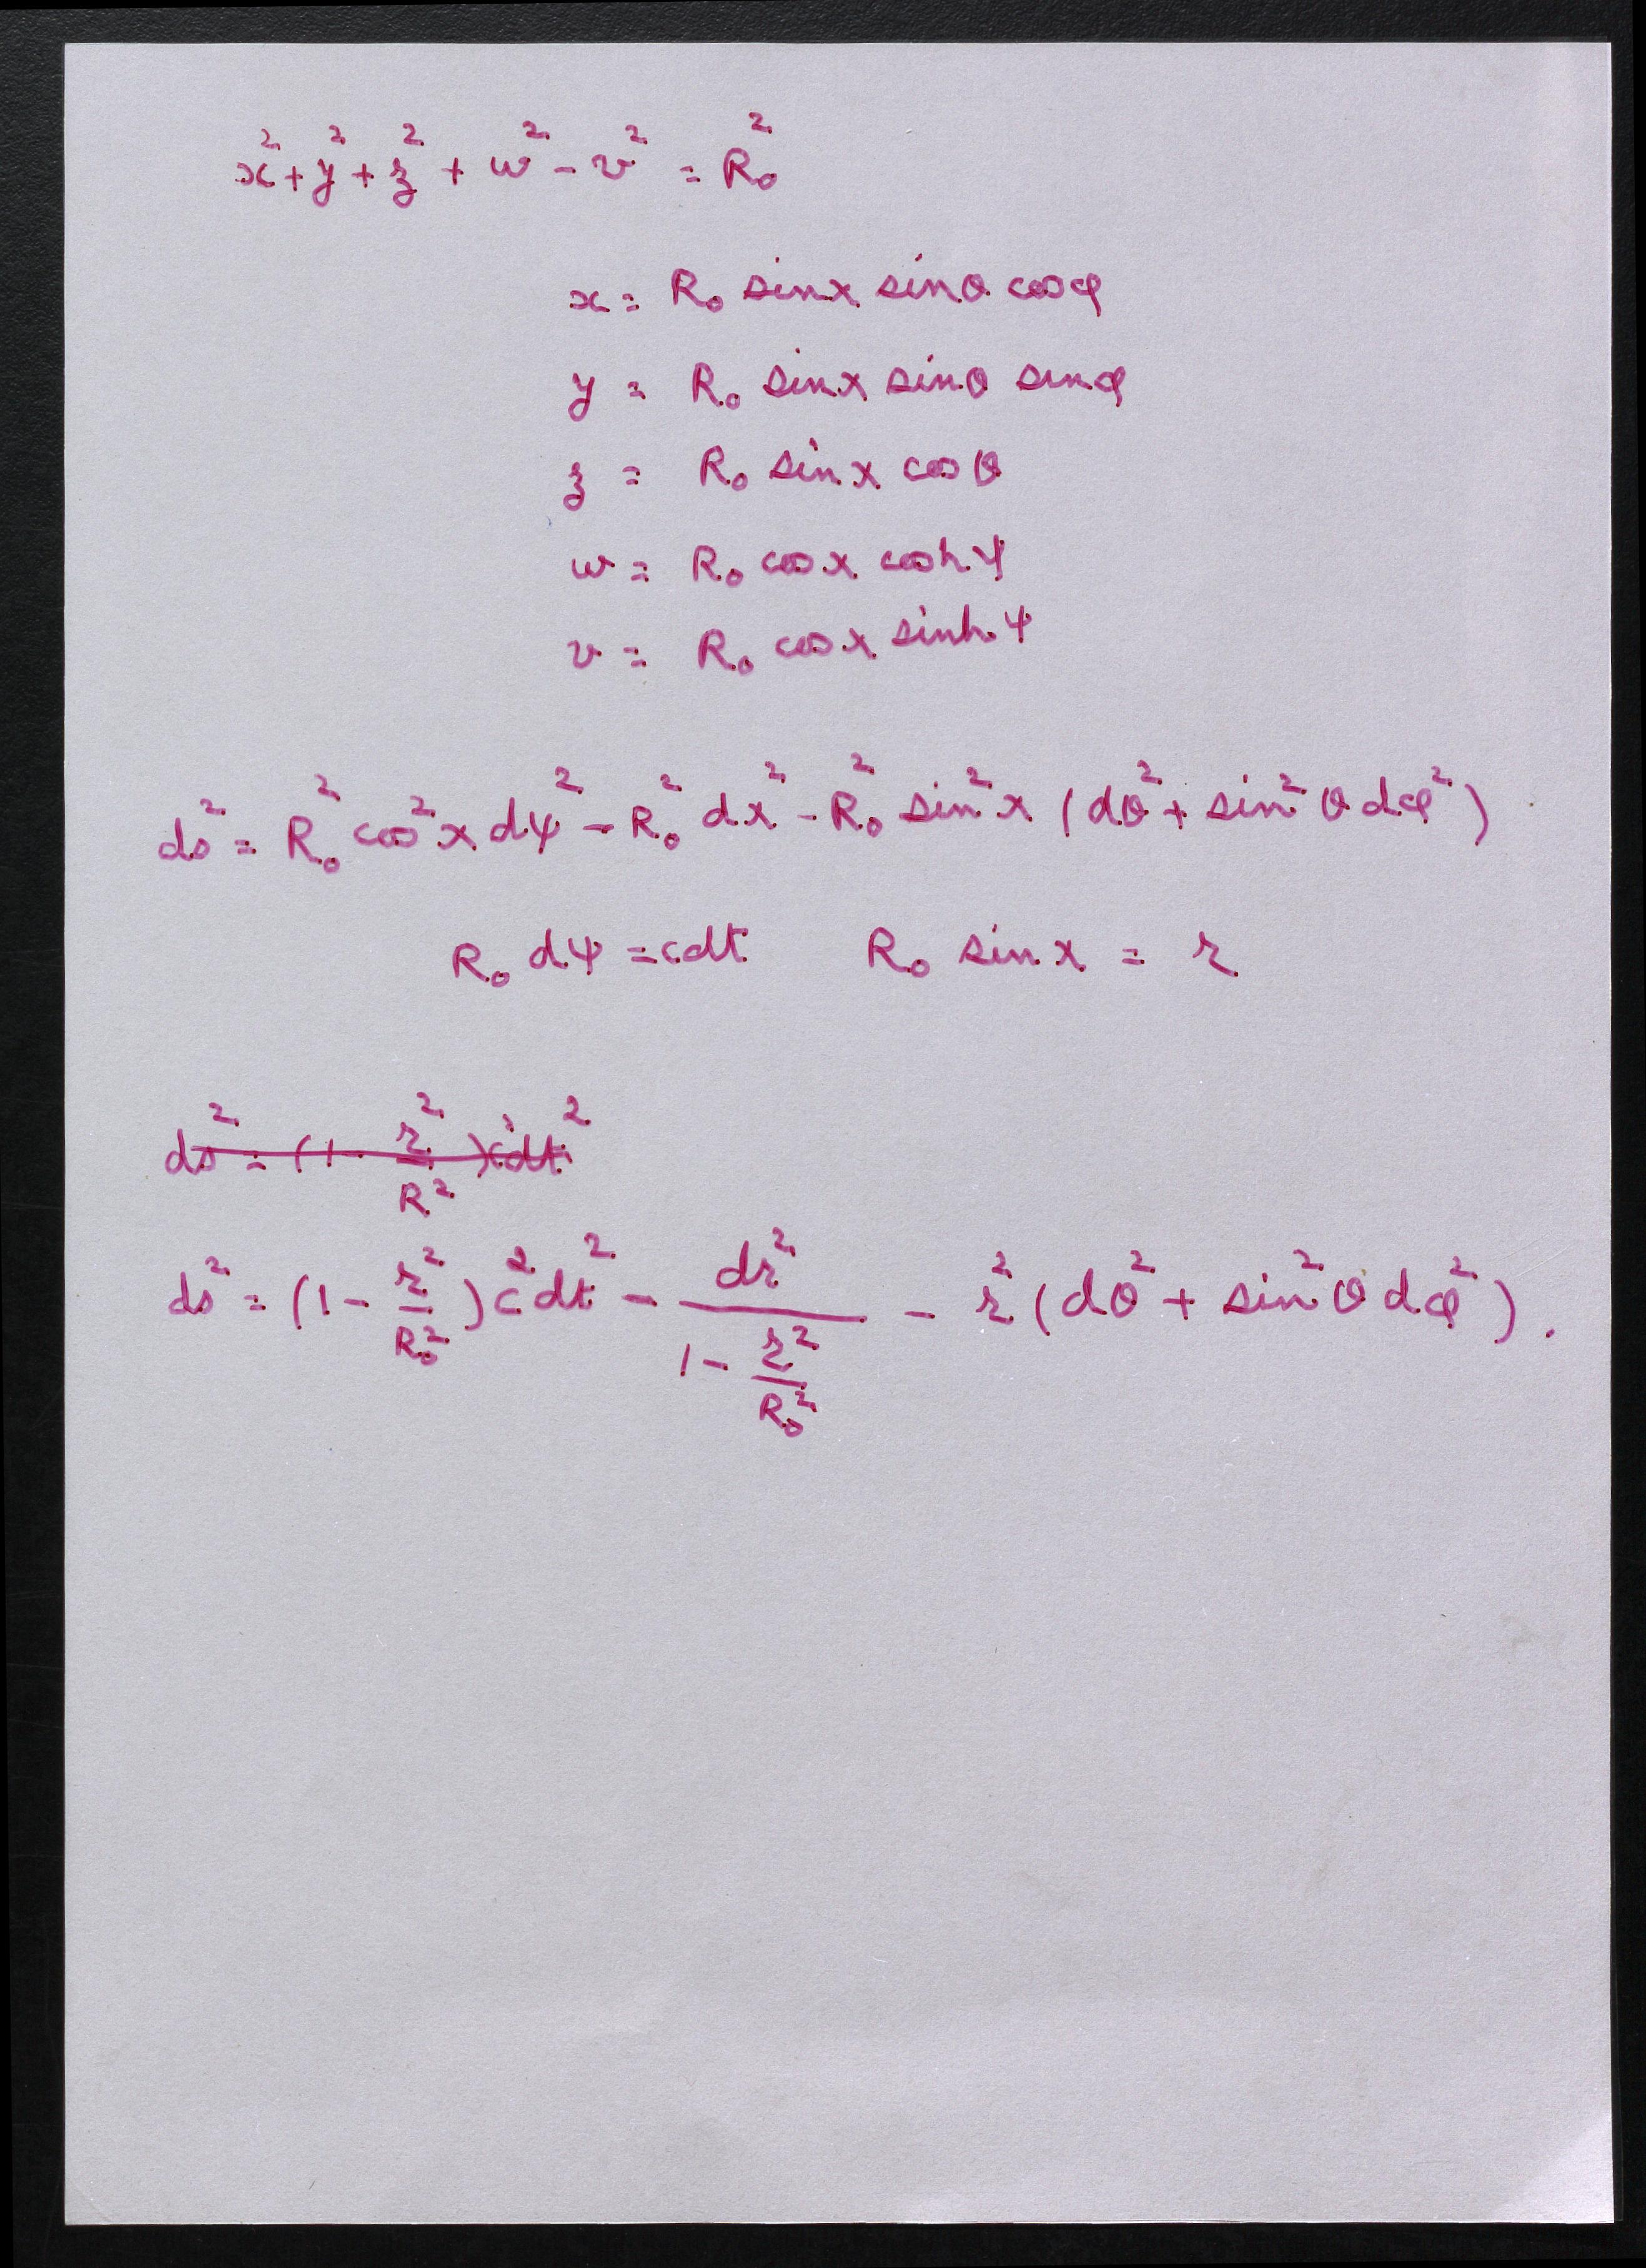 x² + y² + z² + w² - v² = R₀²
x = R₀ sinχ sinθ cosφ
y = R₀ sinχ sinθ sinφ
z = R₀ sinχ cosθ
w = R₀ cosχ coshψ
v = R₀ cosχ sinhψ
ds² = R₀² cos²χ dψ² - R₀² dχ² - R₀² sin²χ (dθ² + sin²θ dφ²)
R₀ dψ = cdt R₀ sinχ = r
ds² = (1 - r²/R²)c²dt²
ds² = (1 - r²/R₀²)c²dt² - dr²/(1 - r²/R₀²) - r²(dθ² + sin²θ dφ²).